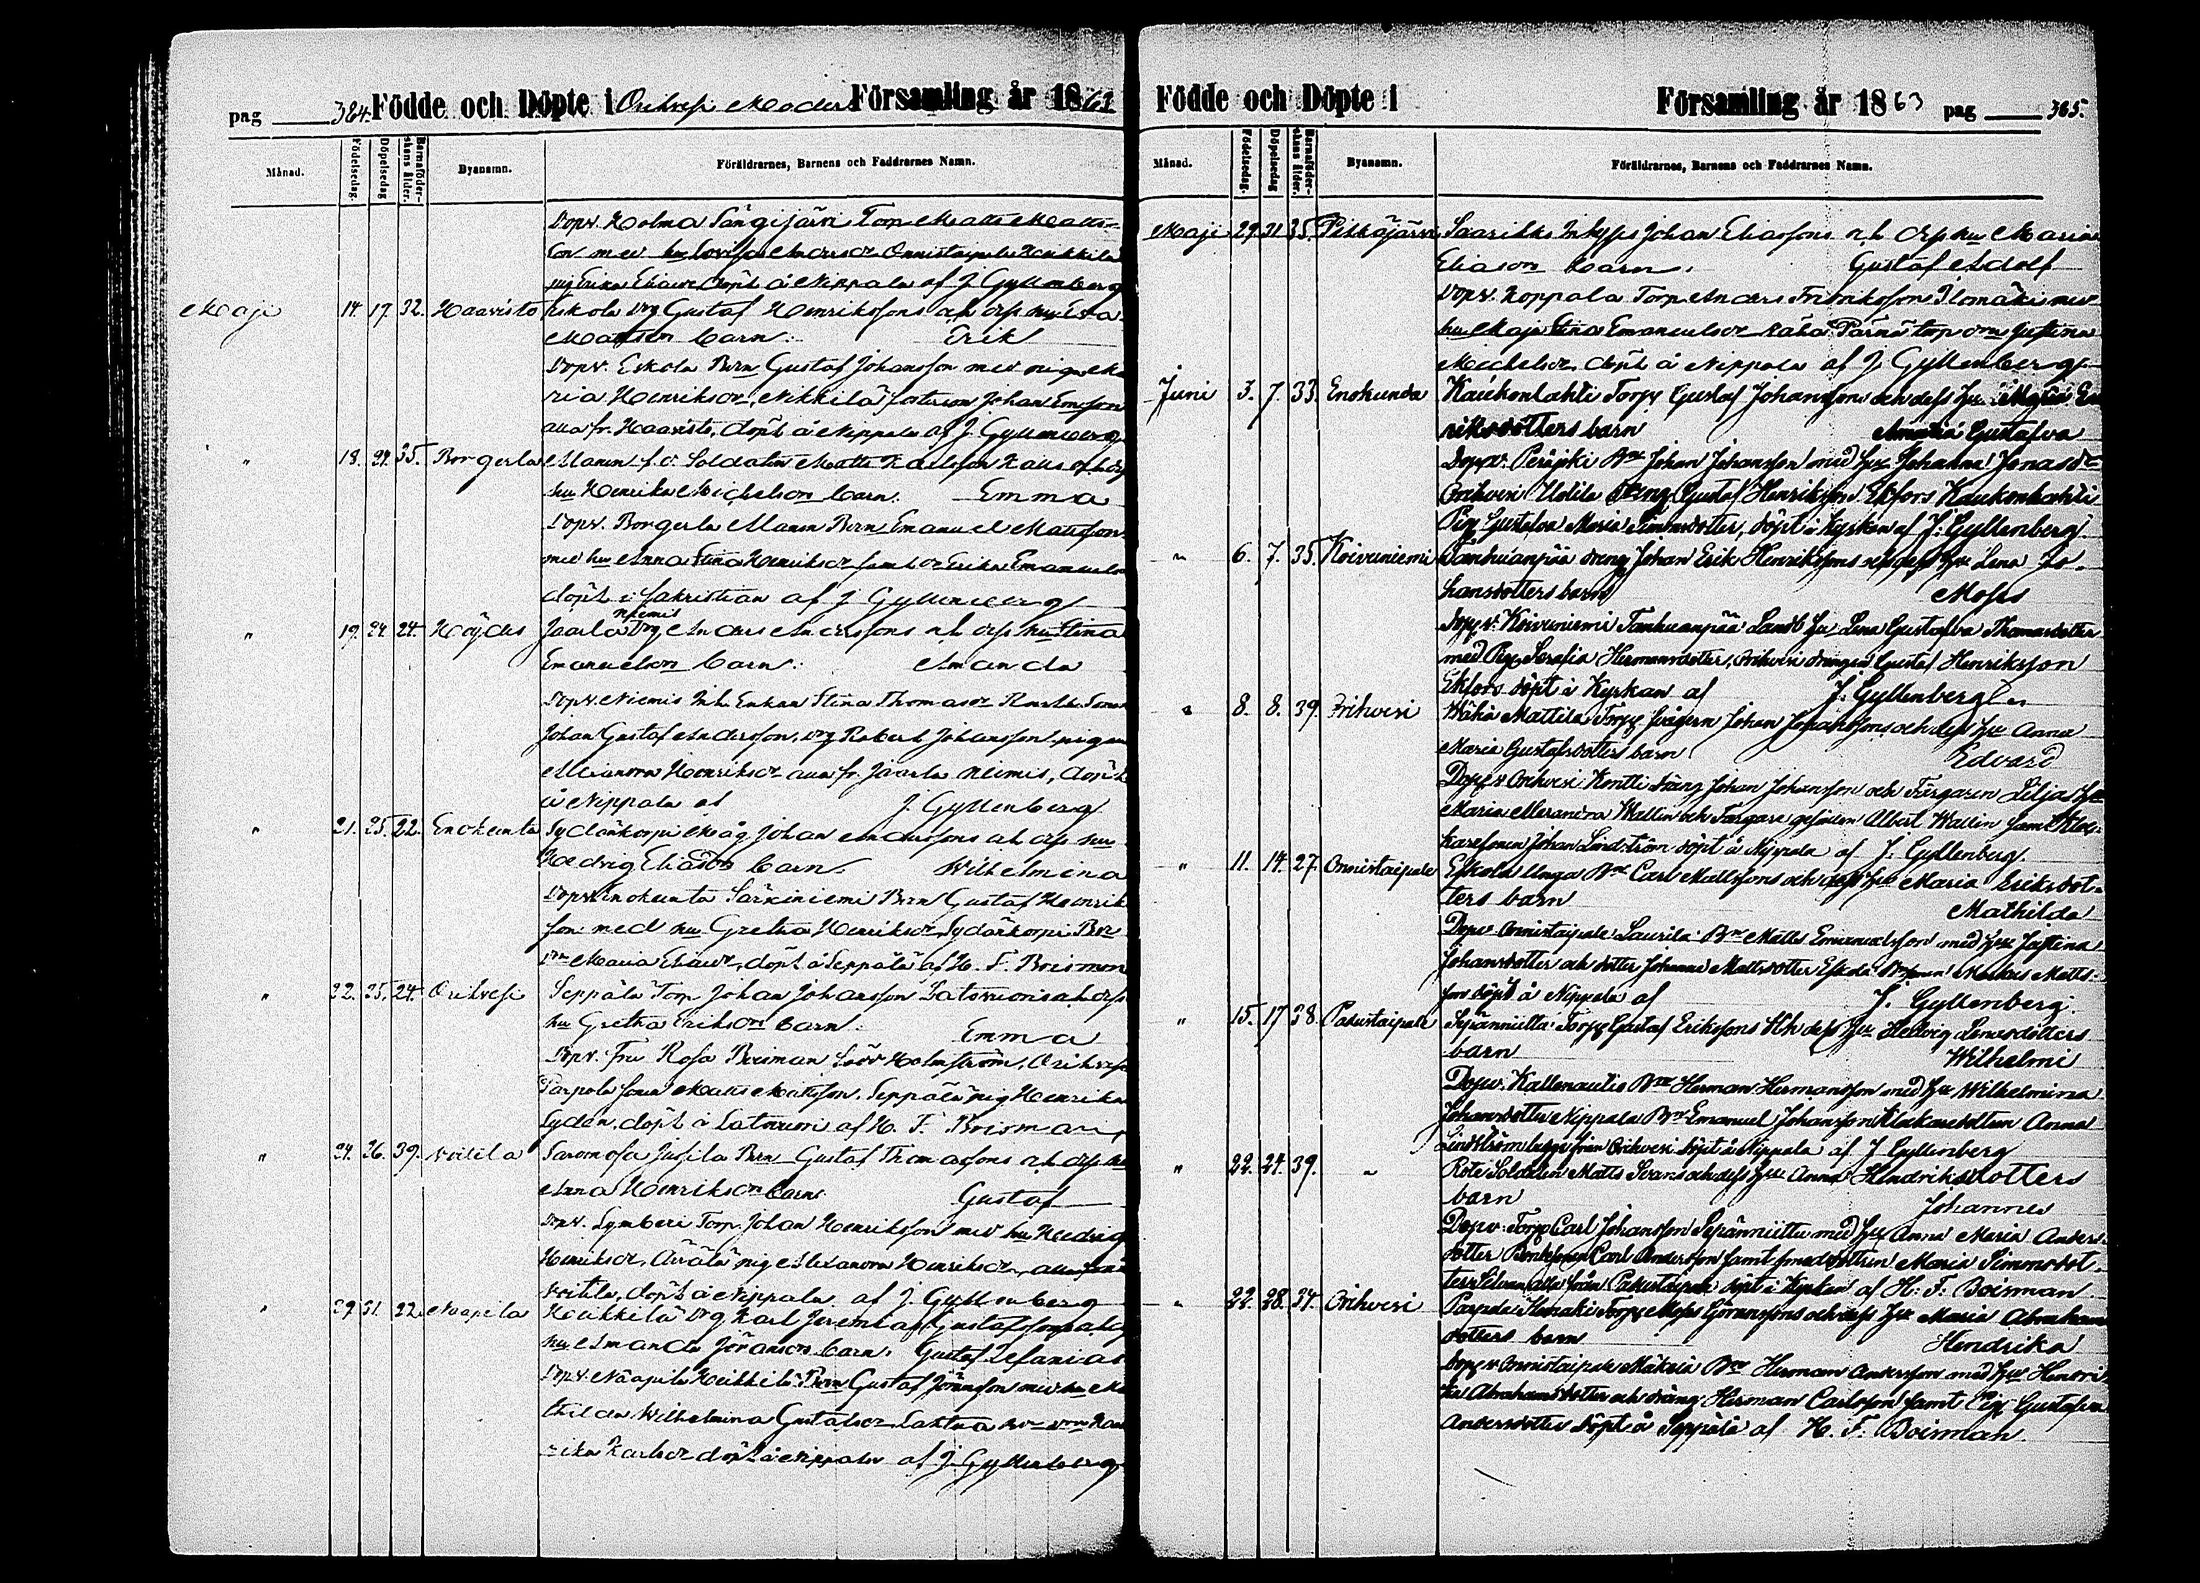 pag 364. Födde och Döpte i Orihvesi Moder Församling år 1863
Månad. Födelsedag. Döpelsedag Barnaföderskans ålder. Byanamn. Föräldrarnes, Barnens och Faddrarnes Namn.
Dopv. Holma Längijärvi Torp Matts Matts-
son med hu Lovisa Andersdr Onnistaipale Heikkilä
pig Erica Eliaedr döpt å Nippala af J. Gyllenberg
Maji 14. 17. 32. Haavisto Eskola Drg Gustaf Henrikssons och dess hu Eva
Mattsdr barn. Erik
Dopv. Eskola Bdn Gustaf Johansson med pigan Ma
ria Henriksdr, Nikkilä Johan
alla fr. Haavisto, döpt å Nippala af J. Gyllenberg
" 18. 24. 35. Borgerla Mann f.d. Soldaten Matts Karlsson och dess
hu Henrika Michelsdr barn. Emma
Dopv. Borgerla Mann Bdn Emanuel Mattsson
med hu Anna Stina Henriksdr samt dr Erika Emanuels
döpt i Sakristian af J Gyllenberg
" 19. 24. 24. Höydes Jaarla Niemis Drg Anders Anderssons och dess hu Stina
Emanuelsdr barn. Amanda
Dopv. Niemis Inh. Enkan Stina Thomasdr
Johan Gustaf Andersson, Drg Robert Johansson, pigan
Eleanora Henriksdr alla fr. Jaarla Niemis, döpt
å Nippala af J. Gyllenberg
" 21. 25. 22. Enokunta Sydänkorpi Måg Johan Anderssons och dess hu
Hedvig Eliaedr barn. Wilhelmina
Dopv. Enokunta Särkiniemi Bdn Gustaf Henrik
son med hu Gretha Henriksdr, Sydänkorpi Bde
Drn Maria Eliaedr, döpt å Seppälä af H. F. Boisman
" 22. 25. 24. Orihvesi Seppälä Torp Johan Johansson Latvuoris och dess
hu Gretha Eriksdr barn. Emma
Dopv. Fru Rosa Boisman född Holmström, Orihvesi
Parpola sonen Matts Mattsson, Seppälä pig Henrika
Lydén, döpt å Latvuori af H. F. Boisman
" 24. 26. 39. Voitila Jussila Bdn Gustaf Thomassons och dess hu
Anna Henriksdr barn Gustaf
Dopv. Torp. Johan Henriksson med hu Hedvig
Henriksdr, Ärrälä pig Alexandra Henriksdr, alla från
Voitila, döpt å Nippala af J. Gyllenberg
" 29. 31. 22. Naapila Heikkilä Drg Karl Jeremias Gustafssons och dess
hu Amanda Jöransdr barn. Gustaf Zefanias
Dopv. Naapila Heikkilä Bdn Gustaf Jöransson med hu Ma
thilda Wilhelmina Gustafsdr Lahtua Bde Drn Hen
rika Karlsdr döpt å Nippala af J. Gyllenberg
Födde och Döpte i Församling år 1863 pag 365.
Månad. Födelsedag. Döpelsedag Barnaföderskans ålder. Byanamn. Föräldrarnes, Barnens och Faddrarnes Namn.
Maji 29. 31. 35. Pitkäjärvi Saarikko Inhyses Johan Eliassons och dess hu Maria
Eliasdr barn. Gustaf Adolf
Dopv. Koppala Torp Anders Fredriksson Ilomäki med
hu Maja Stina Emanuelsdr Pärnä torp drn Justina
Michelsdr döpt å Nippala af J. Gyllenberg
Juni 3. 7. 33. Enokunda Kaukonlahti Torp Gustaf Johanssons och dess Hu Maria En
riksdotters barn Amalia Gustafva
Dopv. Peräjoki Bde Johan Johansson med Hu Johanna Jonasdr
Orihvesi Uotila Dräng Gustaf Henriksson Ekfors Kaukonlahti
Pig Gustafva Maria Simonsdotter, döpt i Kyrkan af J. Gyllenberg
" 6. 7. 35. Koivuniemi Tanhuanpää dreng Johan Erik Henrikssons och dess Hu Lena Jo-
hansdotters barn Moses
Dopv. Koivuniemi Tanhuanpää Landb Hu Lena Gustafva Thomasdotter
med Pig Serafia Hermansdotter, Orihvesi drengen Gustaf Henriksson
Ekfors döpt i Kyrkan af J. Gyllenberg
" 8. 8. 39. Orihvesi Wähä Mattila Torp Johan Johanssons och dess Hu Anna
Maria Gustafsdotters barn Edvard
Dopv. Orihvesi Kontti dräng Johan Johansson och Färgaren Lilja Hu
Maria Alexandra Wallin och Färgare gesällen Albert Wallin samt Kloc-
karesonen Johan Lindström döpt å Nippala af J. Gyllenberg.
" 11. 14. 27. Onnistaipale Eskola Unga Bde Carl Mattssons och dess Hu Maria Eriksdot-
ters barn Mathilda
Dopv. Onnistaipale Laurila Bde Matts Emanuelsson med Hu Justina
Johansdotter och dotter Johanna Mattsdotter Eskola Matts-
son döpt å Nippala af J. Gyllenberg.
" 15. 17. 38. Pakustaipale Sepänniittu Torp Gustaf Erikssons och dess Hu Hedvig Simonsdotters
barn Wilhelmi
Dopv. Kallenautio Bde Herman Hermansson med Hu Wilhelmina
Johansdotter Nippala Bde Emanuel Johansson Klockaredottren Anna
Lindström begge från Orihvesi döpt å Nippala af J Gyllenberg
" 22. 24. 39. " Rote Soldaten Matts Svans och dess Hu Anna Hendriksdotters
barn Johannes
Dopv. Torp Carl Johansson Sepänniittu med Hu Anna Maria Anders-
dotter Carl Andersson samt dottren Maria Simonsdot-
ter alla från Pakustaipale döpt i Kyrkan af H. F. Boisman
" 22. 28. 34. Orihvesi Parpola Torp Moses Göranssons och dess Hu Maria Abrahams
dotters barn Hendrika
Dopv. Onnistaipale Mäkelä Bde Herman Andersson med Hu Henri
ka Abrahamsdotter och dräng Herman Carlsson samt Pig Gustafva
Andersdotter döpt å Seppälä af H. F. Boisman.